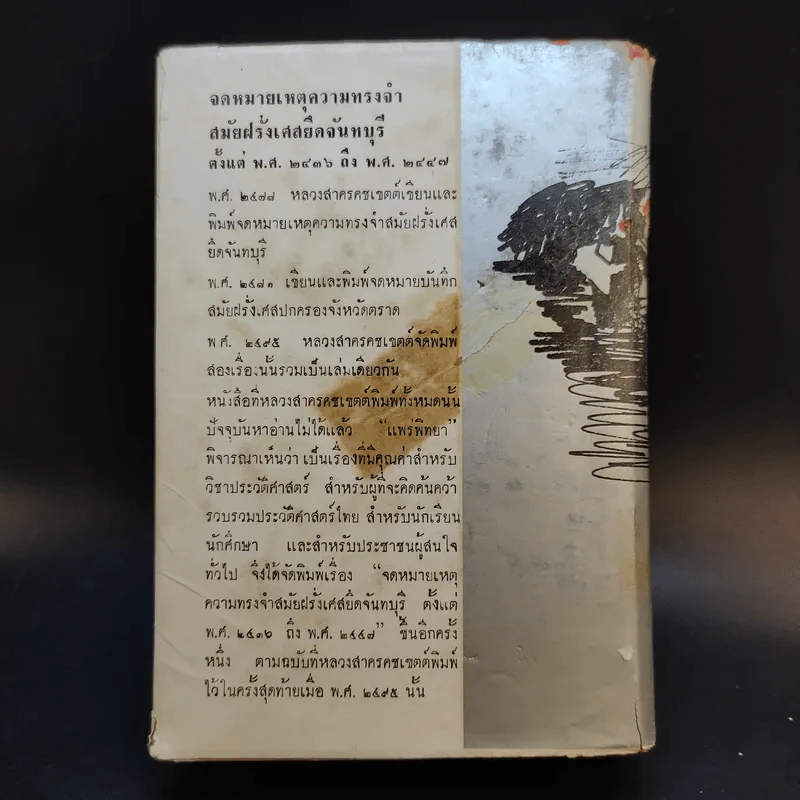 จดหมายเหตุความทรงจำ
สมัยฝรั่งเศสยึดจันทบุรี
ตั้งแต่ พ.ศ. ๒๔๓๖ ถึง พ.ศ. ๒๔๔๗
พ.ศ. ๒๔๗๘ หลวงสาครคชเขตต์เขียนและ
พิมพ์จดหมายเหตุความทรงจำสมัยฝรั่งเศส
ยึดจันทบุรี
พ.ศ. ๒๔๘๑ เขียนและพิมพ์จดหมายบันทึก
สมัยฝรั่งเศสปกครองจังหวัดตราด
พ.ศ. ๒๔๙๕ หลวงสาครคชเขตต์จัดพิมพ์
สองเรื่องนั้นรวมเป็นเล่มเดียวกัน
หนังสือที่หลวงสาครคชเขตต์พิมพ์ทั้งหมดนั้น
ปัจจุบันหาอ่านไม่ได้แล้ว “แพร่พิทยา”
พิจารณาเห็นว่า เป็นเรื่องที่มีคุณค่าสำหรับ
วิชาประวัติศาสตร์ สำหรับผู้ที่จะคิดค้นคว้า
รวบรวมประวัติศาสตร์ไทย สำหรับนักเรียน
นักศึกษา และสำหรับประชาชนผู้สนใจ
ทั่วไป จึงได้จัดพิมพ์เรื่อง “จดหมายเหตุ
ความทรงจำสมัยฝรั่งเศสยึดจันทบุรี ตั้งแต่
พ.ศ. ๒๔๓๖ ถึง พ.ศ. ๒๔๔๗” ขึ้นอีกครั้ง
หนึ่ง ตามฉบับที่หลวงสาครคชเขตต์พิมพ์
ไว้ในครั้งสุดท้ายเมื่อ พ.ศ. ๒๔๙๕ นั้น